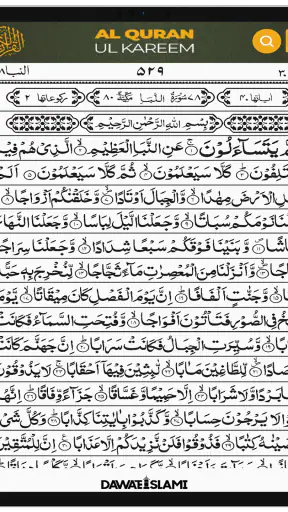 AL QURAN
UL KAREEM
النبا ۵۲۹
اٰیاتها ۴۰ ۷۸ سُوْرَةُ النَّبَاِ مَكِّیَّةٌ ۸۰ رکوعاتها ۲
بِسْمِ اللّٰهِ الرَّحْمٰنِ الرَّحِیْمِ
یَتَسَآءَلُوْنَ ۚ عَنِ النَّبَاِ الْعَظِیْمِ ۙ الَّذِیْ هُمْ
كَلَّا سَیَعْلَمُوْنَ ۙ ثُمَّ كَلَّا سَیَعْلَمُوْنَ
الْاَرْضَ مِهٰدًا ۙ وَّ الْجِبَالَ اَوْتَادًا ۪ۙ وَّ خَلَقْنٰكُمْ اَزْوَاجًا ۙ
نَوْمَكُمْ سُبَاتًا ۙ وَّ جَعَلْنَا الَّیْلَ لِبَاسًا ۙ وَّ جَعَلْنَا
وَّ بَنَیْنَا فَوْقَكُمْ سَبْعًا شِدَادًا ۙ وَّ جَعَلْنَا سِرَاجًا
وَّ اَنْزَلْنَا مِنَ الْمُعْصِرٰتِ مَآءً ثَجَّاجًا ۙ لِّنُخْرِجَ بِهٖ
وَّ جَنّٰتٍ اَلْفَافًا ؕ اِنَّ یَوْمَ الْفَصْلِ كَانَ مِیْقَاتًا ۙ
فِی الصُّوْرِ فَتَاْتُوْنَ اَفْوَاجًا ۙ وَّ فُتِحَتِ السَّمَآءُ فَكَانَتْ
وَّ سُیِّرَتِ الْجِبَالُ فَكَانَتْ سَرَابًا ؕ اِنَّ جَهَنَّمَ كَانَتْ
لِّلطَّاغِیْنَ مَاٰبًا ۙ لّٰبِثِیْنَ فِیْهَاۤ اَحْقَابًا ۚ لَا یَذُوْقُوْنَ
بَرْدًا وَّ لَا شَرَابًا ۙ اِلَّا حَمِیْمًا وَّ غَسَّاقًا ۙ جَزَآءً وِّفَاقًا ؕ
لَا یَرْجُوْنَ حِسَابًا ۙ وَّ كَذَّبُوْا بِاٰیٰتِنَا كِذَّابًا ؕ وَ كُلَّ
كِتٰبًا ۙ فَذُوْقُوْا فَلَنْ نَّزِیْدَكُمْ اِلَّا عَذَابًا ۠ اِنَّ
DAWATEISLAMI